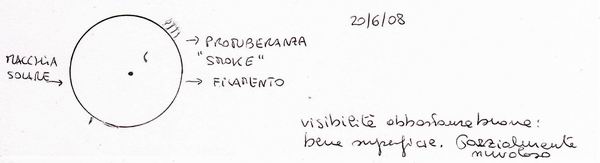 20/6/08
→ PROTUBERANZA
"SMOKE"
MACCHIA
SOLARE →
→ FILAMENTO
visibilità abbastanza buona:
bene superficie. Parzialmente
nuvoloso